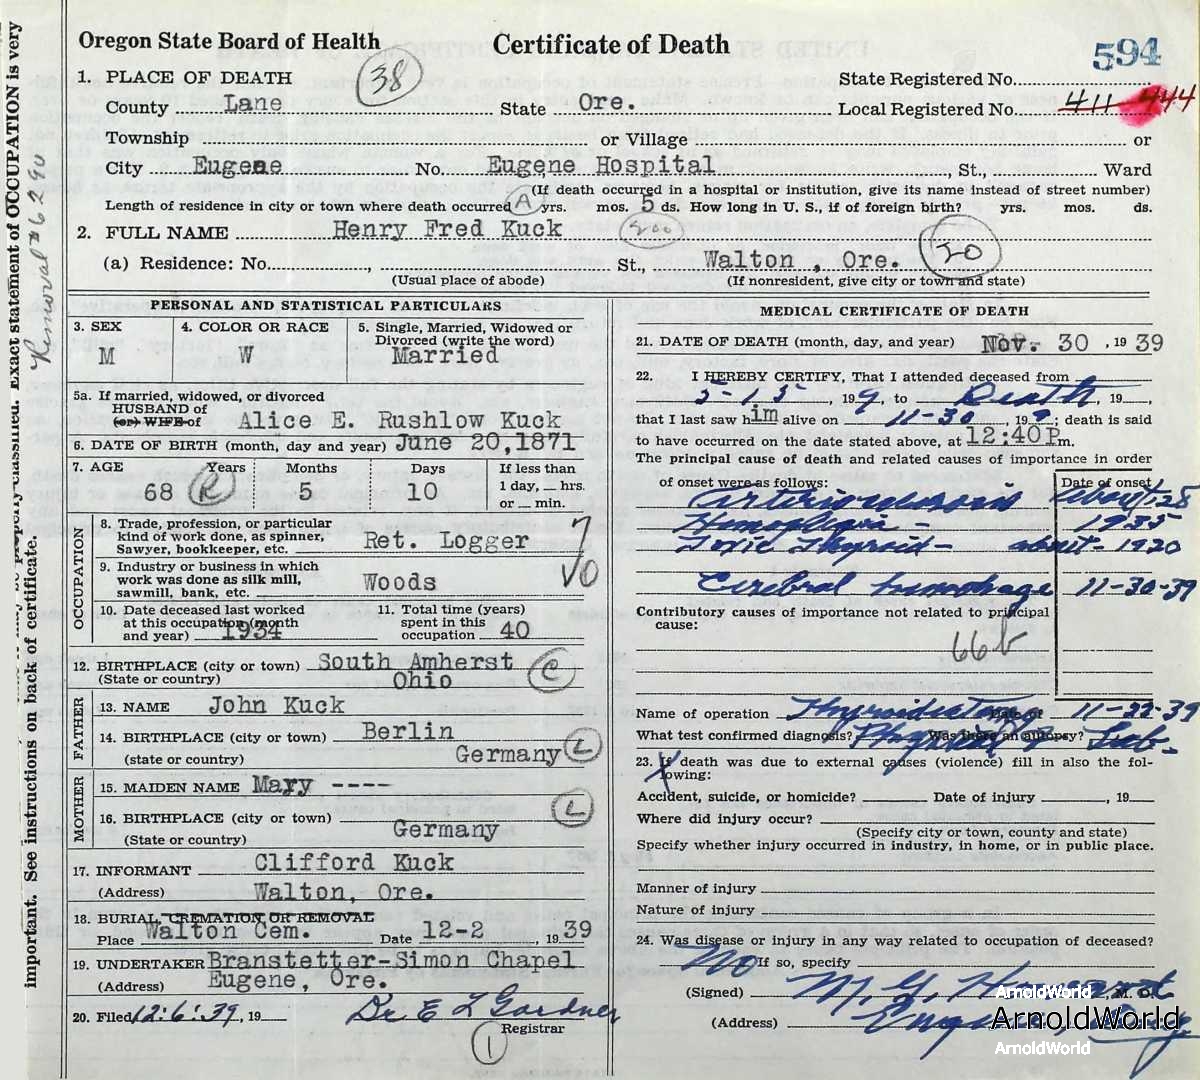 Oregon State Board of Health
Certificate of Death
594
38
1. PLACE OF DEATH
State Registered No.
County Lane State Ore. Local Registered No. 411 444
Township or Village or
City Eugene No. Eugene Hospital St., Ward
(If death occurred in a hospital or institution, give its name instead of street number)
Length of residence in city or town where death occurred A yrs. mos. 5 ds. How long in U. S., if of foreign birth? yrs. mos. ds.
2. FULL NAME Henry Fred Kuck 200
(a) Residence: No. , St., Walton , Ore. 20
(Usual place of abode) (If nonresident, give city or town and state)
PERSONAL AND STATISTICAL PARTICULARS
3. SEX M
4. COLOR OR RACE W
5. Single, Married, Widowed or
Divorced (write the word)
Married
5a. If married, widowed, or divorced
HUSBAND of
(or) WIFE of Alice E. Rushlow Kuck
6. DATE OF BIRTH (month, day and year) June 20,1871
7. AGE Years Months Days If less than
1 day, hrs.
68 R 5 10 or min.
OCCUPATION
8. Trade, profession, or particular
kind of work done, as spinner,
Sawyer, bookkeeper, etc. Ret. Logger 7
9. Industry or business in which
work was done as silk mill,
sawmill, bank, etc. Woods V0
10. Date deceased last worked
at this occupation (month
and year) 1934
11. Total time (years)
spent in this
occupation 40
12. BIRTHPLACE (city or town) South Amherst
(State or country) Ohio C
FATHER
13. NAME John Kuck
14. BIRTHPLACE (city or town) Berlin
(state or country) Germany L
MOTHER
15. MAIDEN NAME Mary ----
16. BIRTHPLACE (city or town) L
(State or country) Germany
17. INFORMANT Clifford Kuck
(Address) Walton, Ore.
18. BURIAL, CREMATION OR REMOVAL
Place Walton Cem. Date 12-2 , 1939
19. UNDERTAKER Branstetter-Simon Chapel
(Address) Eugene, Ore.
20. Filed 12-6-39, 19 Dr E L Gardner
Registrar
1
MEDICAL CERTIFICATE OF DEATH
21. DATE OF DEATH (month, day, and year) Nov. 30 , 19 39
22. I HEREBY CERTIFY, That I attended deceased from
5-15, 199, to Death, 19 ,
that I last saw him alive on 11-30, 199; death is said
to have occurred on the date stated above, at 12:40 P m.
The principal cause of death and related causes of importance in order
of onset were as follows: Date of onset
Hemoplegia - 1935
Toxic Thyroid - about - 1920
Cerebral hemorhage 11-30-39
Contributory causes of importance not related to principal
cause:
66b
Name of operation Date of 11-22-39
What test confirmed diagnosis? Physical & Lab- Was there an autopsy?
23. If death was due to external causes (violence) fill in also the fol-
lowing:
Accident, suicide, or homicide? Date of injury , 19
Where did injury occur?
(Specify city or town, county and state)
Specify whether injury occurred in industry, in home, or in public place.
Manner of injury
Nature of injury
24. Was disease or injury in any way related to occupation of deceased?
No If so, specify
(Signed) M. G. , M. D.
(Address) Eugene, Oreg
ArnoldWorld
ArnoldWorld
ArnoldWorld
Removal #6290
Exact statement of OCCUPATION is very
important. See instructions on back of certificate.